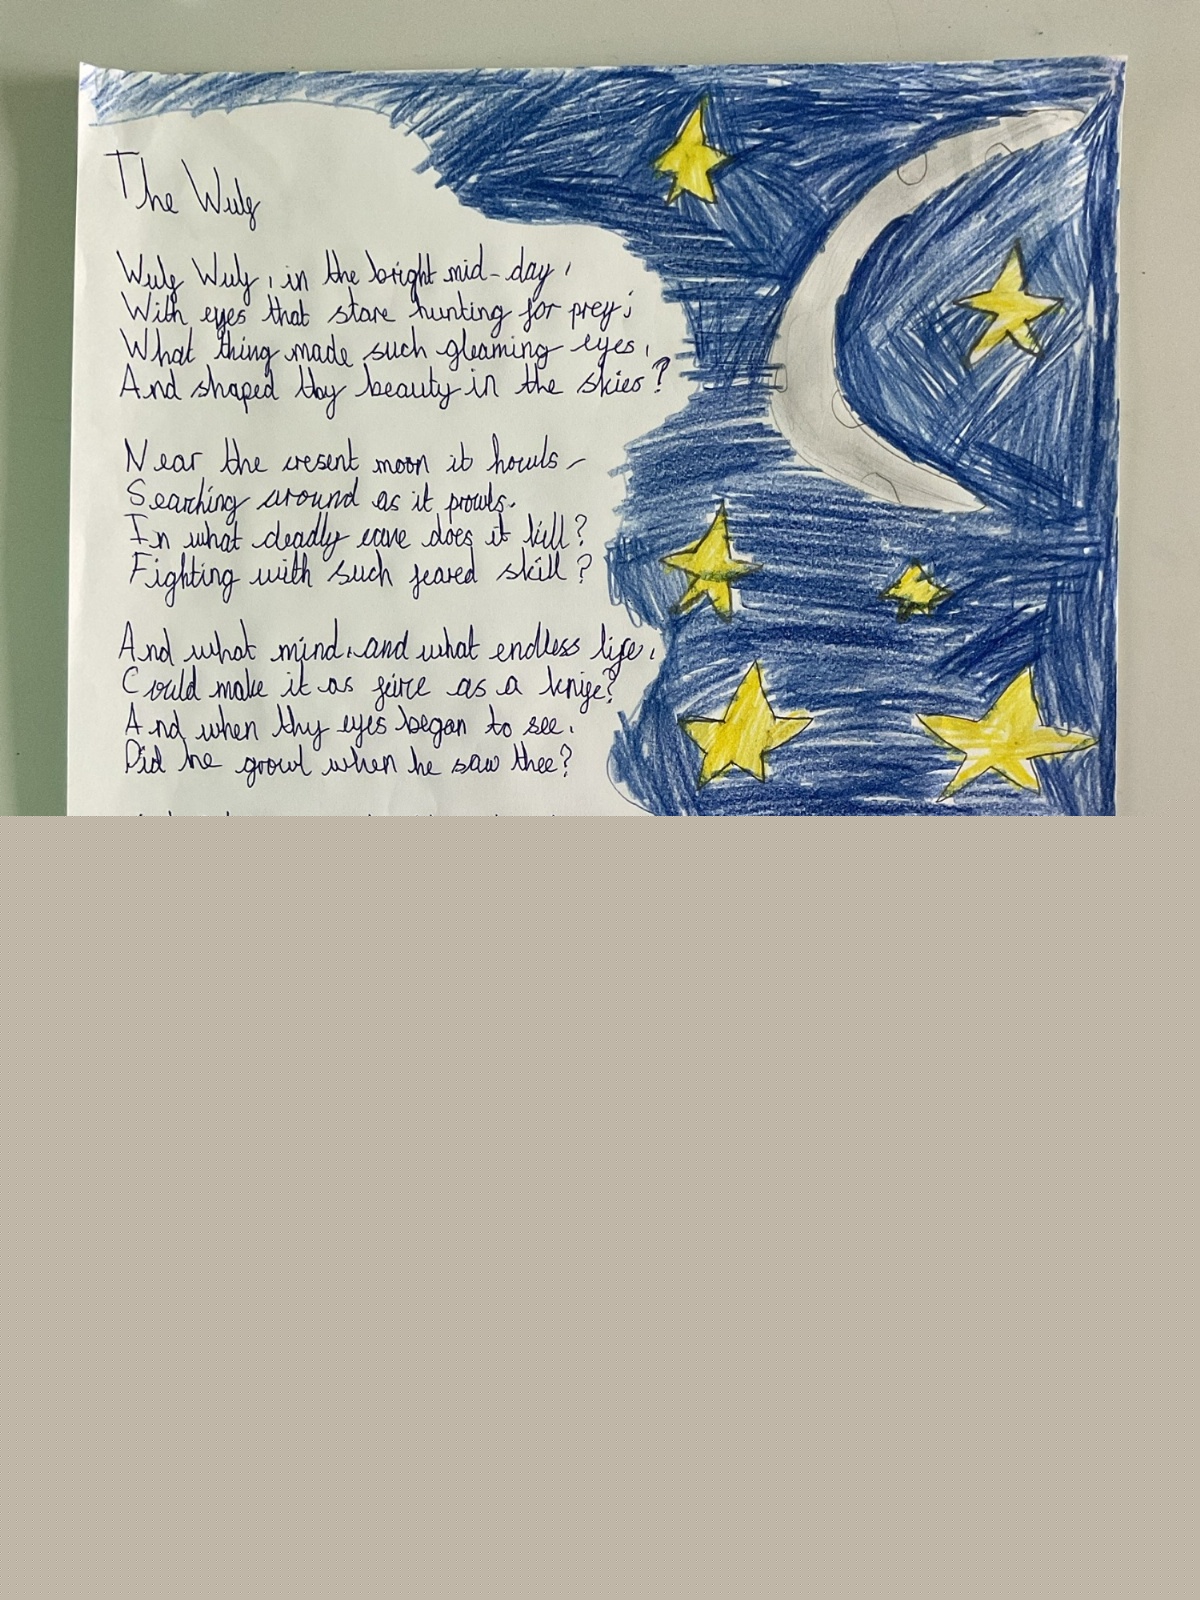 The Wulf
Wulf Wulf, in the bright mid-day,
With eyes that stare hunting for prey;
What thing made such gleaming eyes,
And shaped thy beauty in the skies?
Near the cresent moon it howls -
Searching around as it prowls.
In what deadly cave does it kill?
Fighting with such feared skill?
And what mind, and what endless life,
Could make it as feirce as a knife?
And when thy eyes began to see,
Did he growl when he saw thee?